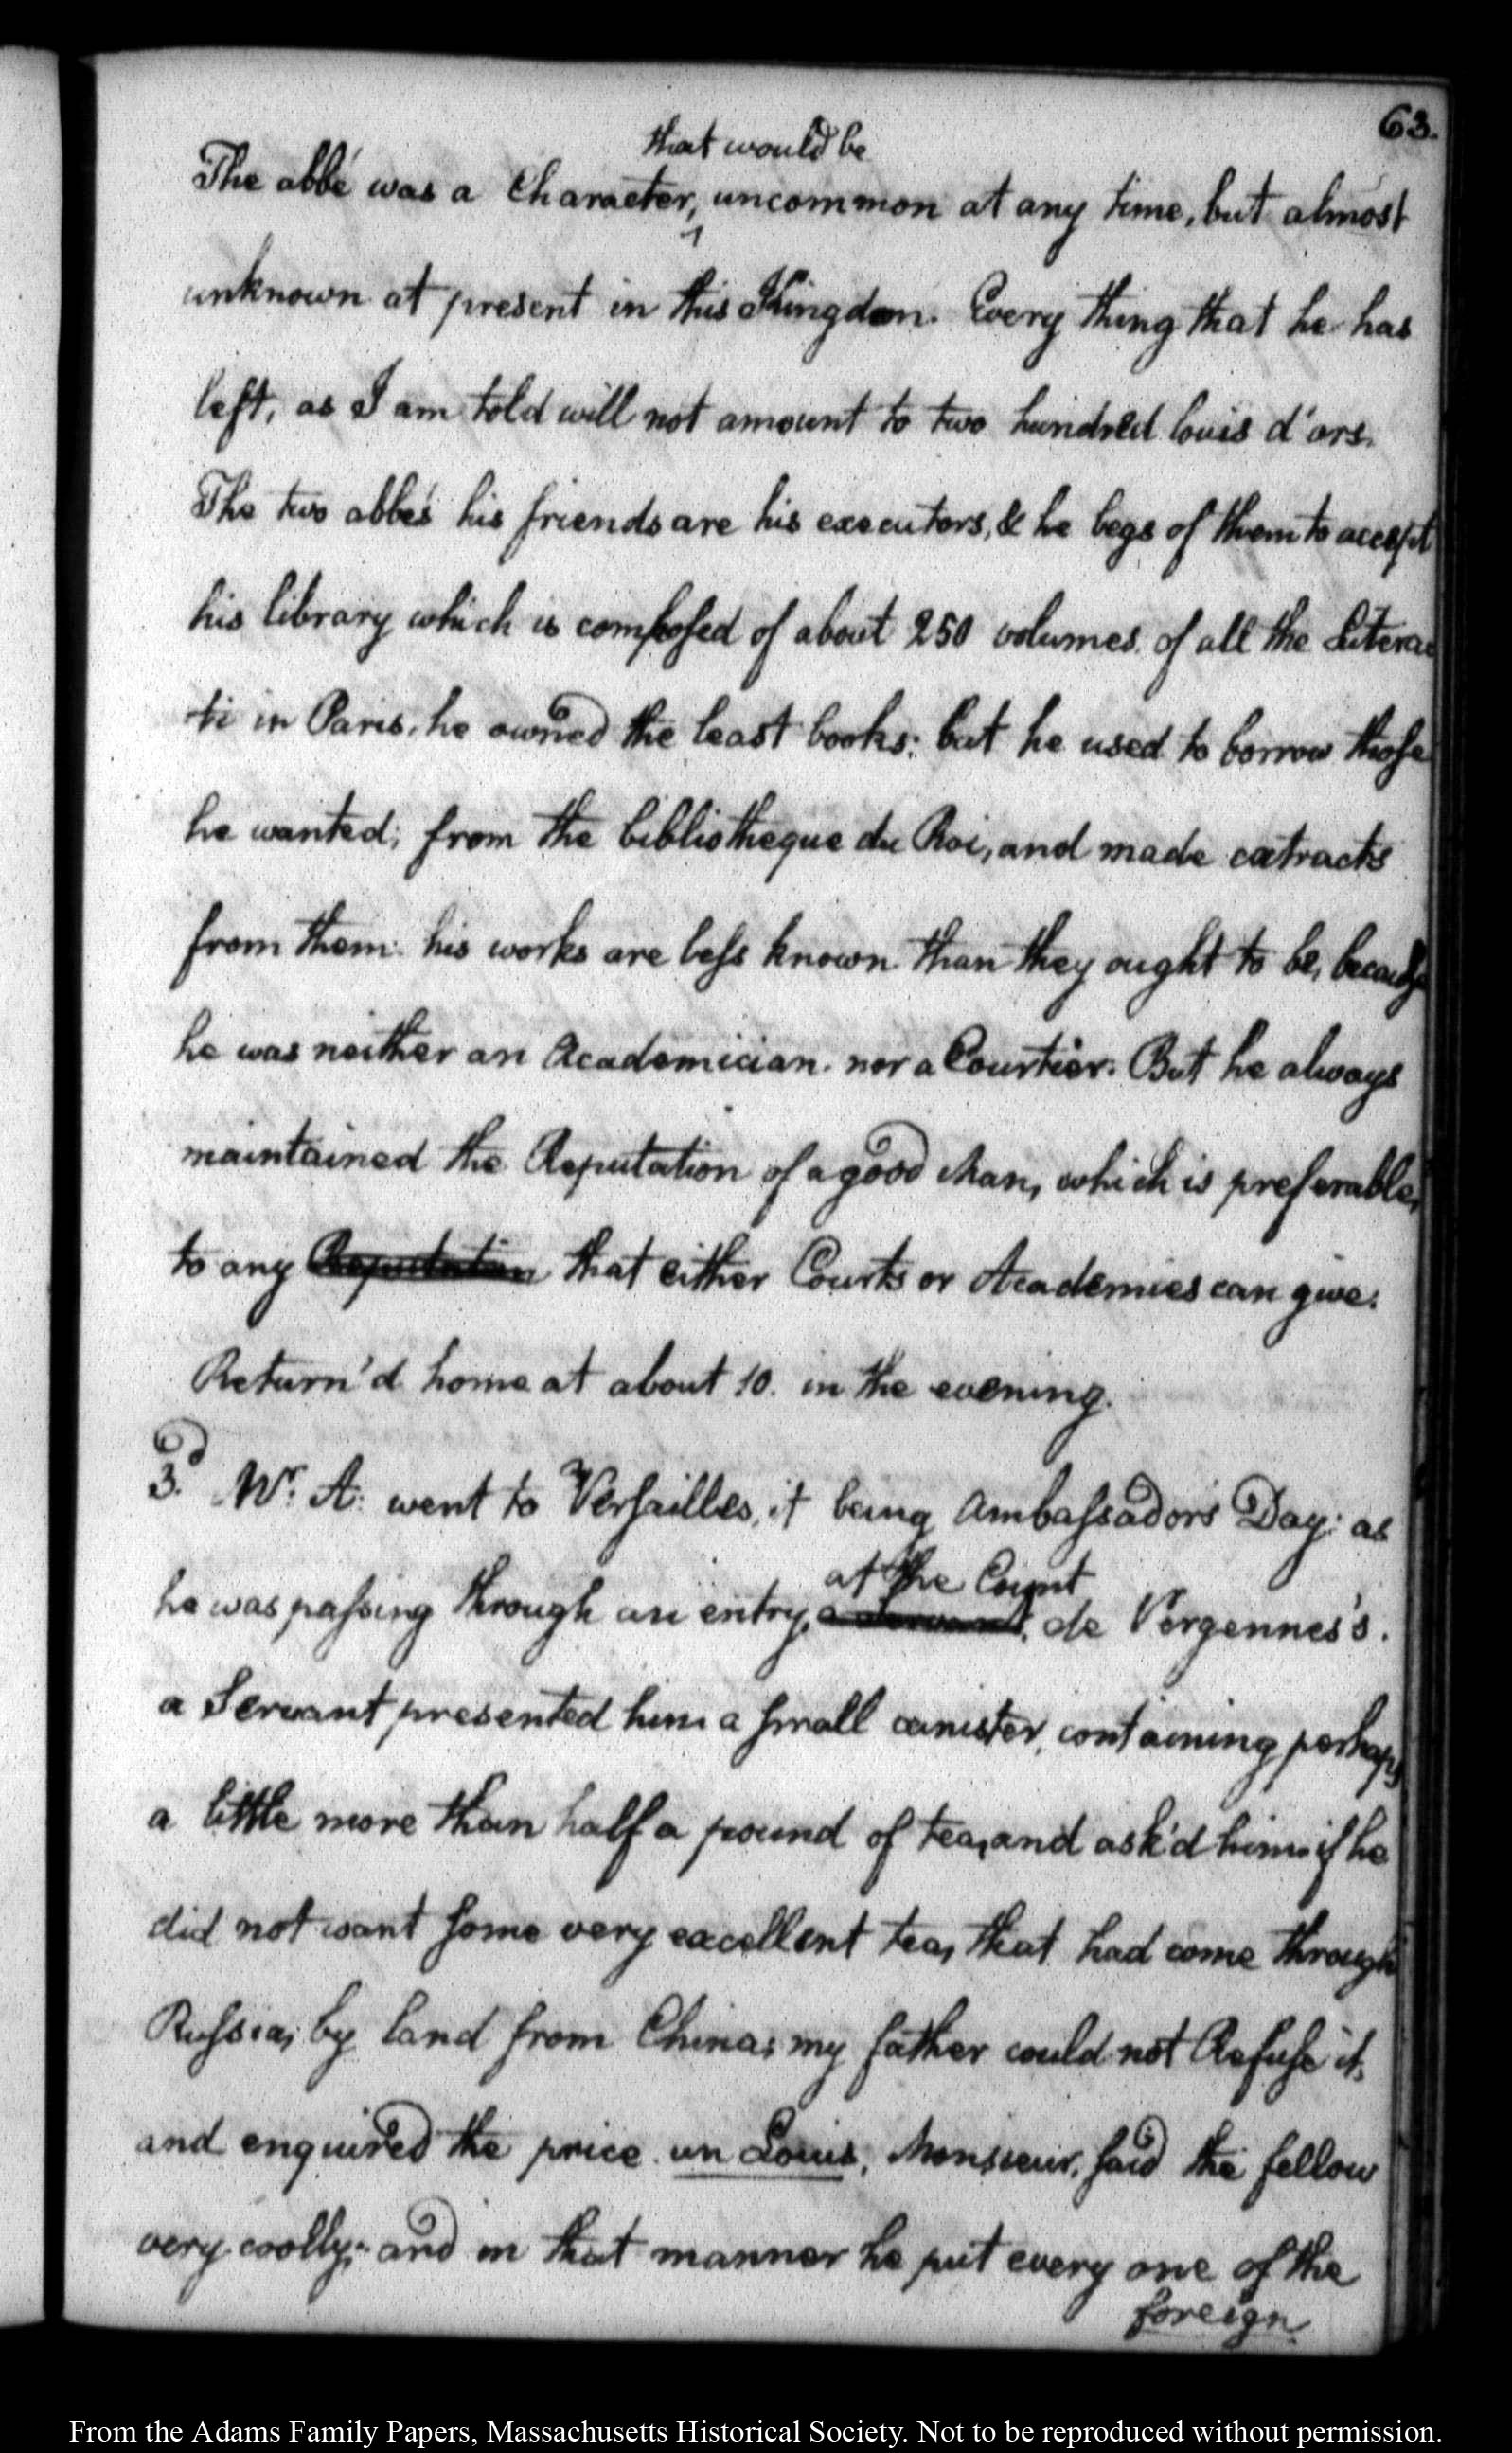 63.
that would be
The abbé was a Character, uncommon at any time, but almost
unknown at present in this Kingdom. Every thing that he has
left, as I am told will not amount to two hundred louis d'ors.
The two abbés his friends are his executors, & he begs of them to accept
his library which is composed of about 250 volumes. of all the Litera
ti in Paris, he owned the least books: but he used to borrow those
he wanted; from the bibliotheque du Roi, and made extracts
from them: his works are less known than they ought to be, because
he was neither an Academician. nor a Courtier. But he always
maintained the Reputation of a good Man, which is preferable,
to any Reputation that either Courts or Academies can give.
Return'd home at about 10. in the evening.
3.d Mr. A. went to Versailles, it being Ambassadors Day: as
at the Count
he was passing through an entry, a servant, de Vergennes's.
a Servant presented him a small canister, containing perhaps
a little more than half a pound of tea, and ask'd him if he
did not want some very excellent tea, that had come through
Russia, by land from China; my father could not Refuse it,
and enquired the price. un Louis, Monsieur, said the fellow
very coolly; and in that manner he put every one of the
foreign
From the Adams Family Papers, Massachusetts Historical Society. Not to be reproduced without permission.